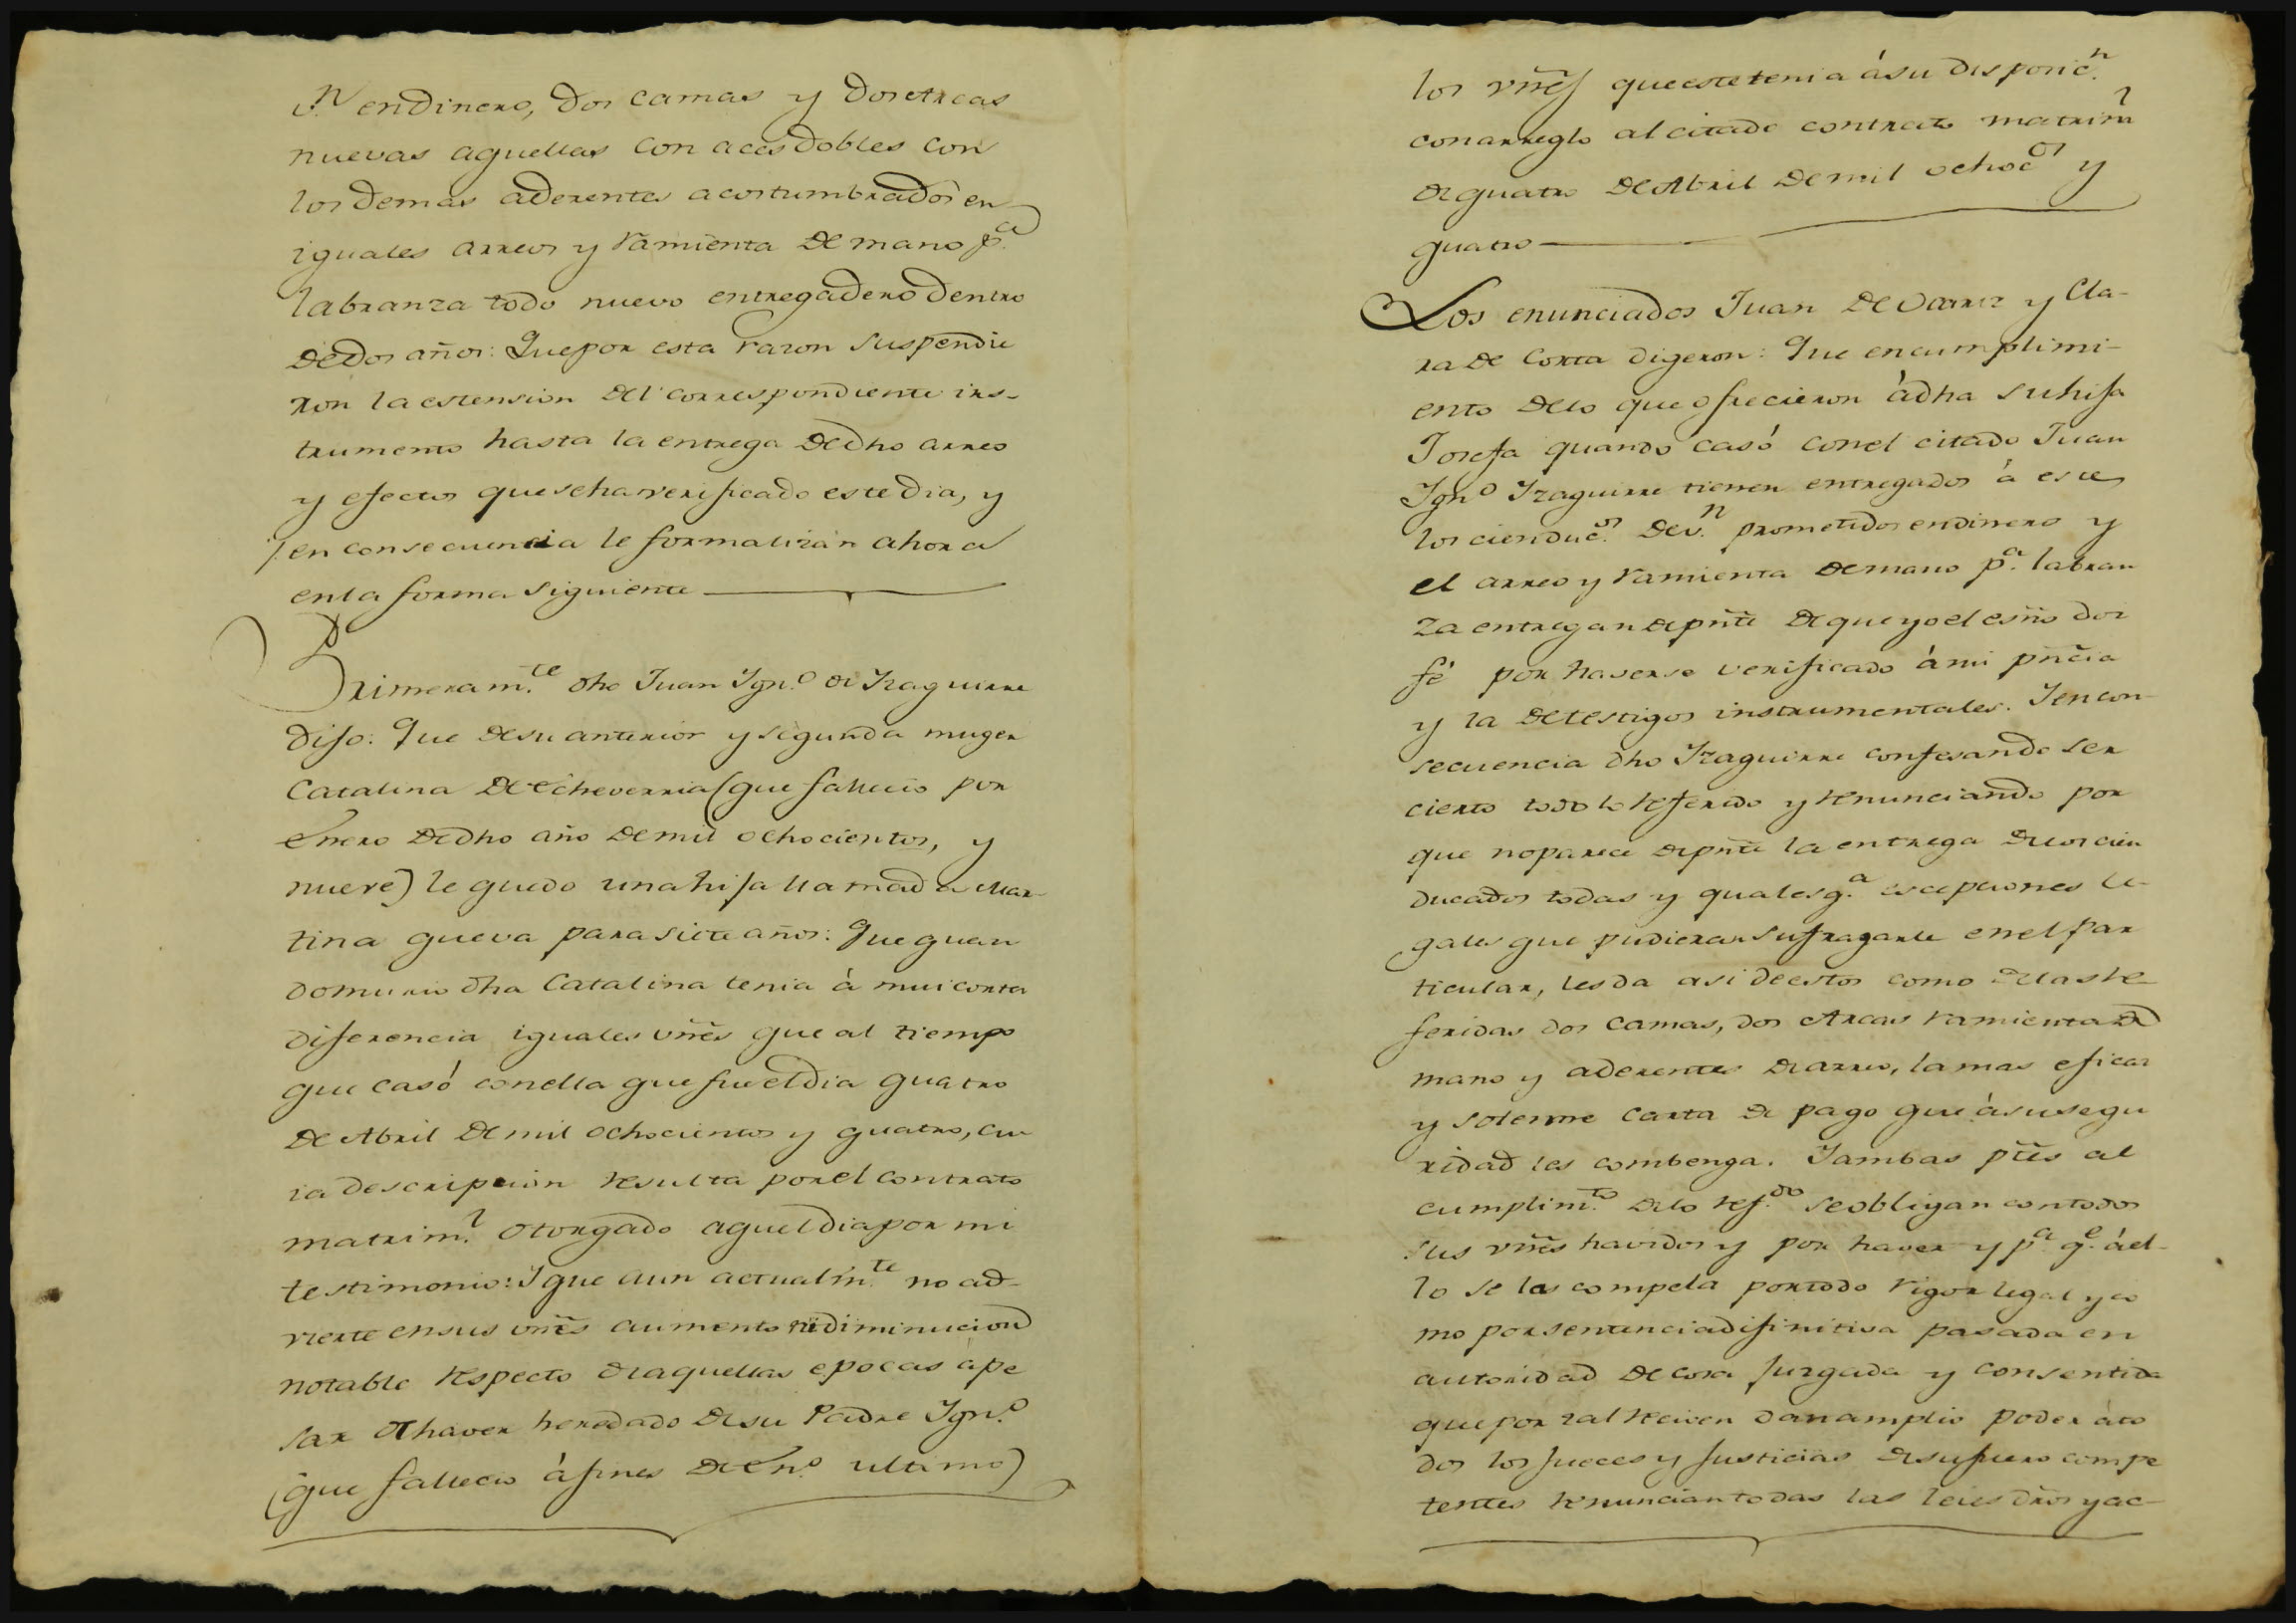 v.n en dinero, dos camas y dos Arcas
nuevas aquellas con aces dobles con
los demas aderentes acostumbrados en
iguales arreos y ramienta de mano p.a
labranza todo nuevo entregadero dentro
de dos años: Que por esta razon suspendie
ron la estension del correspondiente ins-
trumento hasta la entrega de dho arreo
y efectos que se ha verificado este dia, y
en consecuencia le formalizan ahora
en la forma siguiente
Primeram.te dho Juan Ygn.o de Yzaguirre
dijo: Que de su anterior y segunda muger
Catalina de Echeverria (que fallecio por
Enero de dho año de mil ochocientos, y
nueve) le quedo una hija llamada Mar-
tina que va para siete años: Que quan
do murio dha Catalina tenia à mui corta
diferencia iguales vñes que al tiempo
que casó con ella que fue el dia quatro
de Abril de mil ochocientos y quatro, cu
ia descripcion resulta por el contrato
matrim.l otorgado aquel dia por mi
testimonio: Y que aun actualm.te no ad-
vierte en sus vñes aumento ni diminucion
notable respecto de aquellas epocas à pe
sar de haver heredado de su Padre Ygn.o
(que fallecio à fines de En.o ultimo)
los vñes que este tenia à su disposic.n
con arreglo al citado contrato matrim.l
de quatro de Abril de mil ochoc.os y
quatro
Los enunciados Juan de y Cla-
ra de Corta digeron: Que en cumplimi-
ento de lo que ofrecieron à dha su hija
Josefa quando casó con el citado Juan
Ygn.o Yzaguirre tienen entregados à este
los cien duc.s de v.n prometidos en dinero y
el arreo y ramienta de mano p.a labran
za entregan de pñte de que yo el esño doi
fé por haverse verificado à mi pñcia
y la de testigos instrumentales. Y en con-
secuencia dho Yzaguirre confesando ser
cierto todo lo referido y renunciando por
que no parece de pñte la entrega de los cien
ducados todas y qualesq.a escepciones le-
gales que pudieran sufragarle en el par
ticular, les da asi de estos como de las re
feridas dos camas, dos Arcas ramienta de
mano y aderentes de arreo, la mas eficaz
y solemne carta de pago que à su segu
ridad les combenga. Y ambas ptes al
cumplim.to de lo ref.do se obligan con todos
sus vñes havidos y por haver y p.a q.e à el-
lo se les compela por todo rigor legal y co
mo por sentencia difinitiva pasada en
autoridad de cosa juzgada y consentida
que por tal reciven dan amplio poder à to
dos los jueces y justicias de su fuero compe
tentes renuncian todas las leies dros y ac-